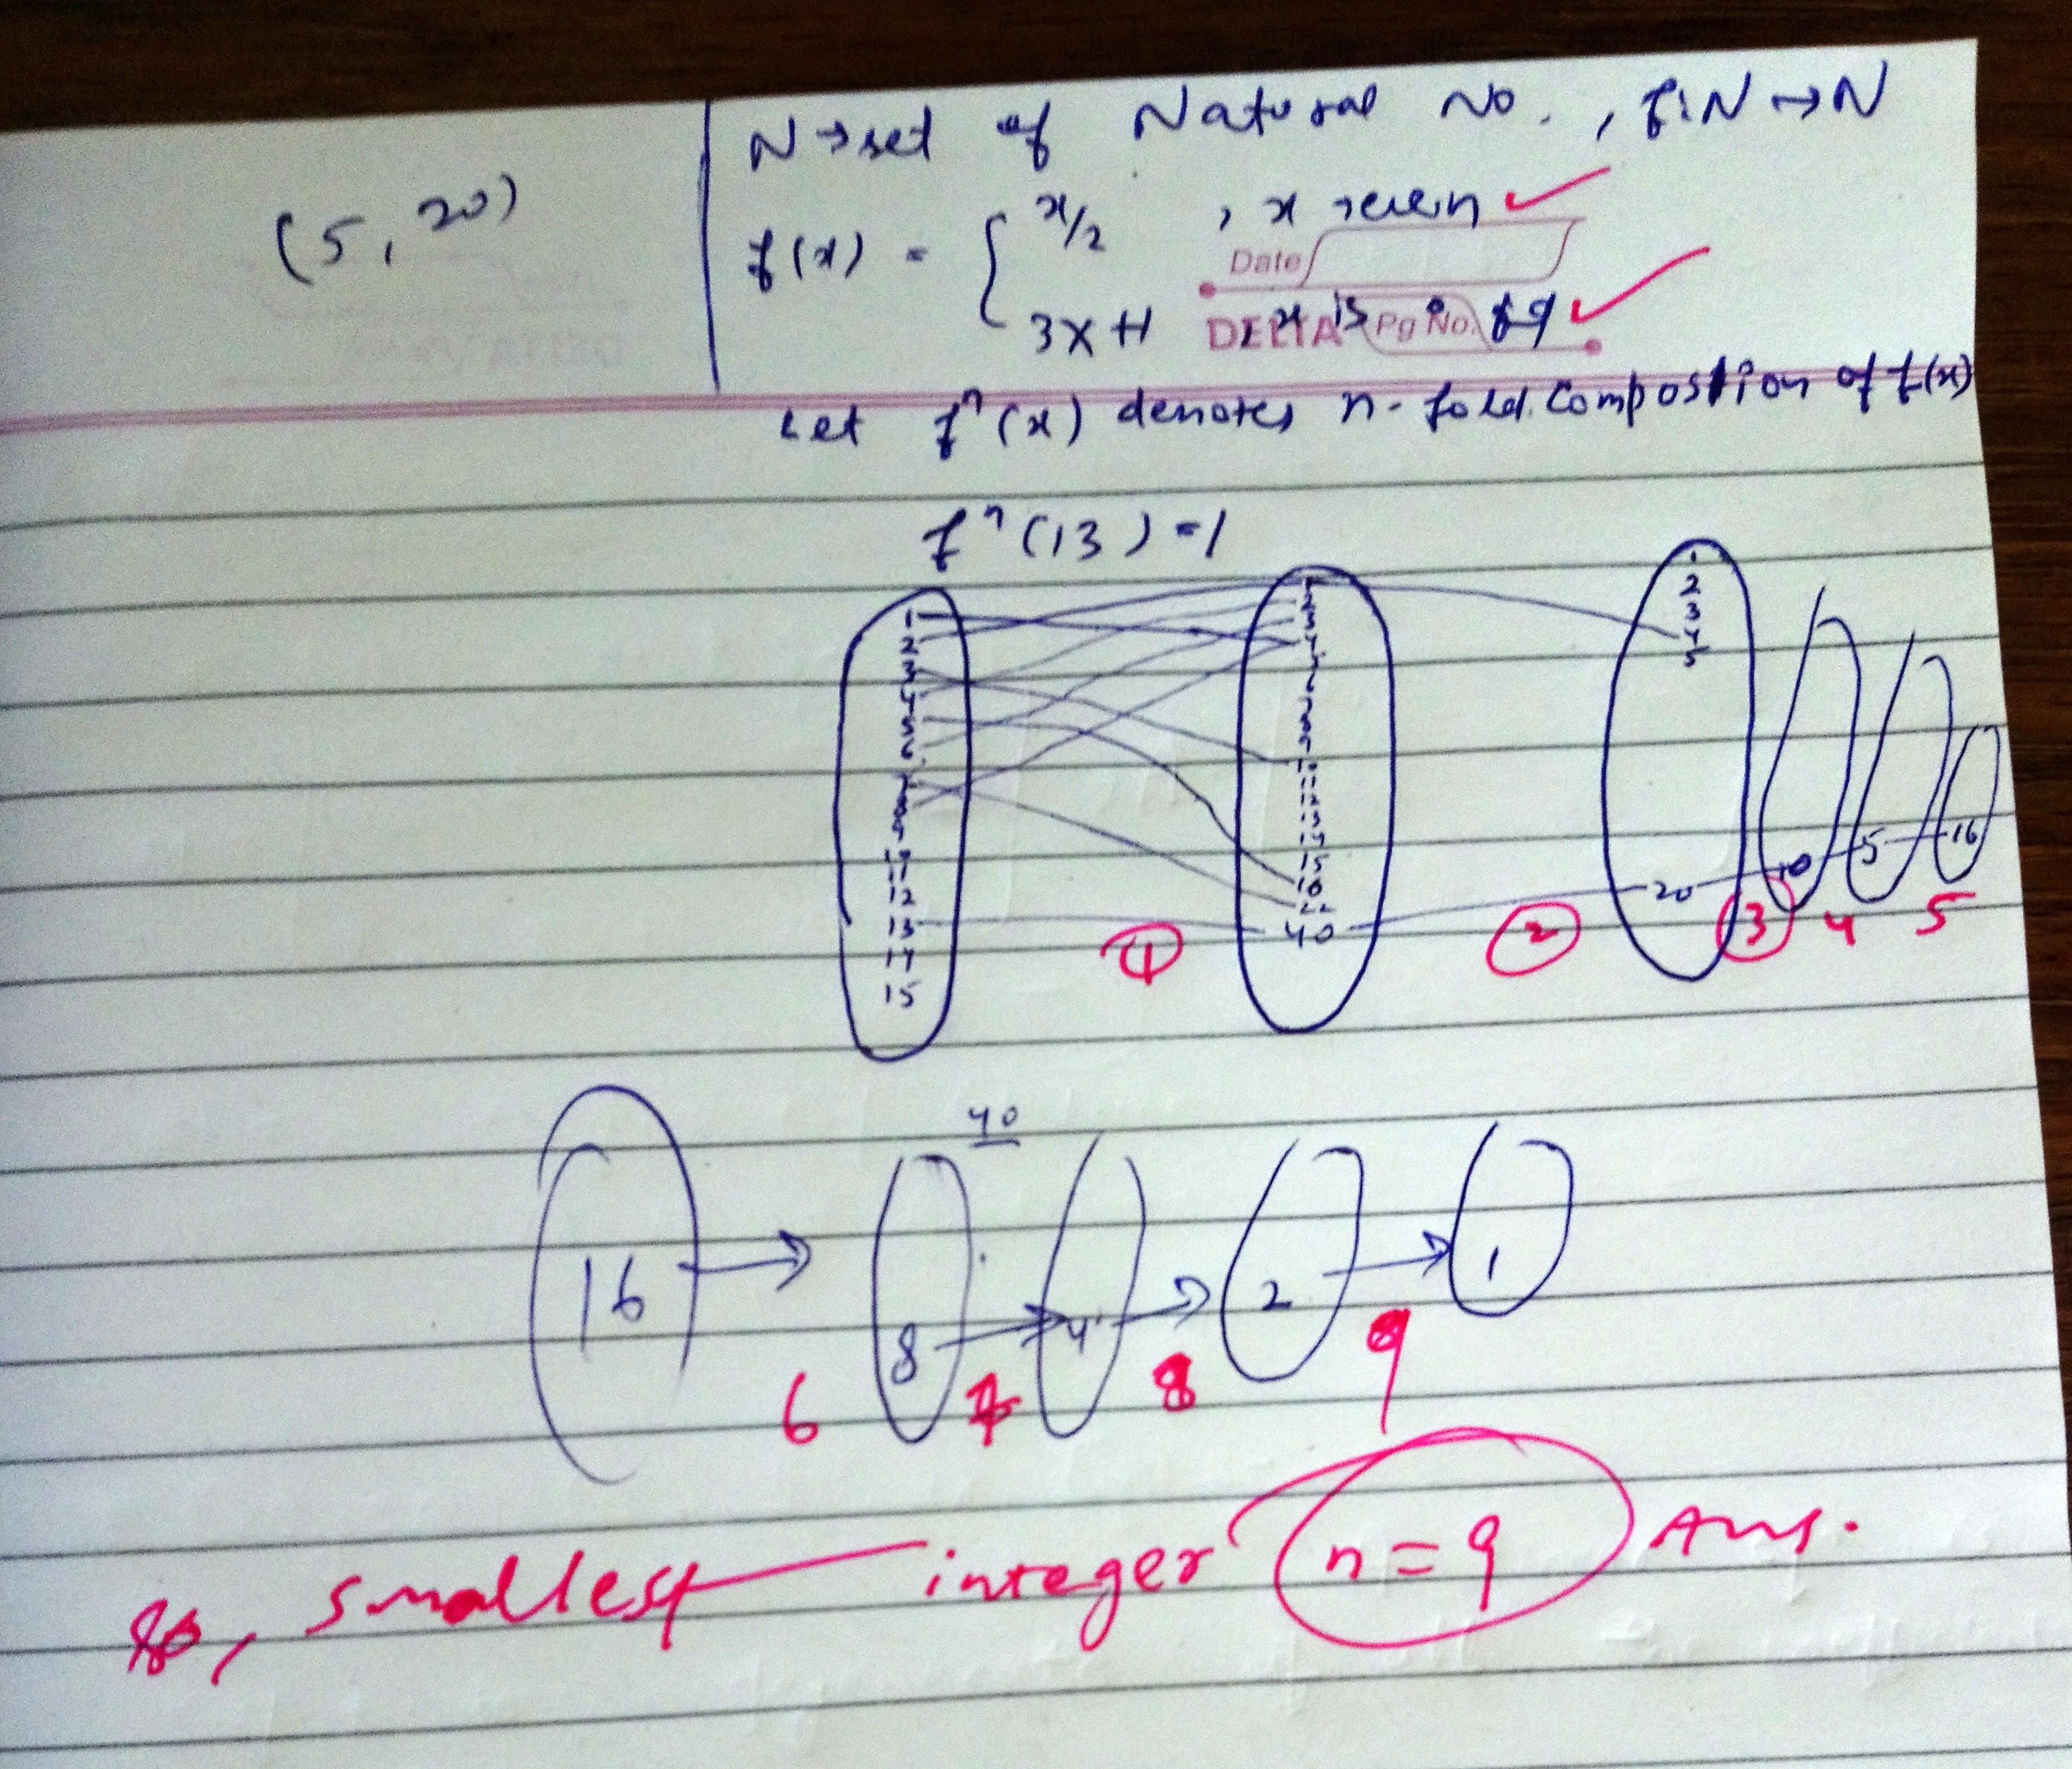 (5, 20)
N → set of Natural No. , f: N → N
f(x) = { x/2 , x → even
Date
3x+1 , x is
DELTA Pg No.
Let fⁿ(x) denotes n-fold composition of f(x)
fⁿ(13) = 1
1 1 1
2 2 2
3 3 3
4 4 4
5 5 5
6 6
7 7
8 8
9 9
10 10
11 11
12 12
13 13
14 14
15 15
16
22
40 20 10 5 16
① ② ③ 4 5
40
16 → 8 → 4 → 2 → 1
6 7 8 9
So, smallest integer n = 9 Ans.